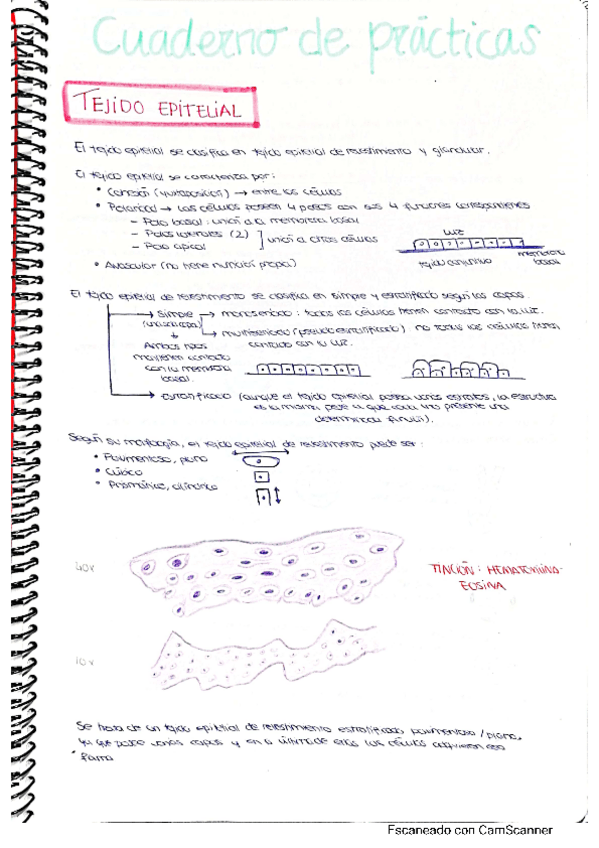 Cuaderno de prácticas
TEJIDO EPITELIAL
El tejido epitelial se clasifica en tejido epitelial de revestimiento y glandular.
El tejido epitelial se caracteriza por:
• Cohesión (yuxtaposición) → entre las células
• Polaridad → Las células poseen 4 polos con sus 4 funciones correspondientes
– Polo basal: unión a la membrana basal
– Polos laterales (2)
– Polo apical
] unión a otras células
luz
tejido conjuntivo
membrana basal
• Avascular (no tiene nutrición propia)
El tejido epitelial de revestimiento se clasifica en simple y estratificado según las capas.
→ Simple → monoseriado: todas las células tienen contacto con la luz.
→ (pseudoestratificado) no todas las células tienen
contacto con la luz.
Ambos tipos
mantienen contacto
con la membrana
basal.
→ Estratificado (aunque el tejido epitelial posea varios estratos, la estructura
es la misma, pese a que cada uno presente una
determinada función).
Según su morfología, el tejido epitelial de revestimiento puede ser:
• Pavimentoso, plano
• Cúbico
• Prismático, cilíndrico
40x
TINCIÓN: HEMATOXILINA-
EOSINA
10x
Se trata de un tejido epitelial de revestimiento estratificado pavimentoso/plano,
ya que posee varias capas y en la última de ellas las células adquieren esa
forma
Escaneado con CamScanner